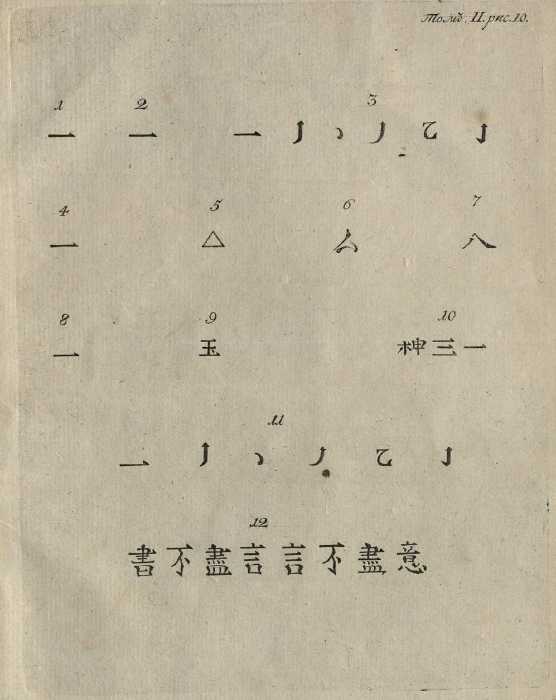 Томъ. II. рис. 10.
1 2 3
一 一 一 亅 丶 丿 乙 亅
4 5 6 7
一 △ 厶 八
8 9 10
一 玉 神 三 一
11
一 亅 丶 丿 乙 亅
12
書不盡言言不盡意